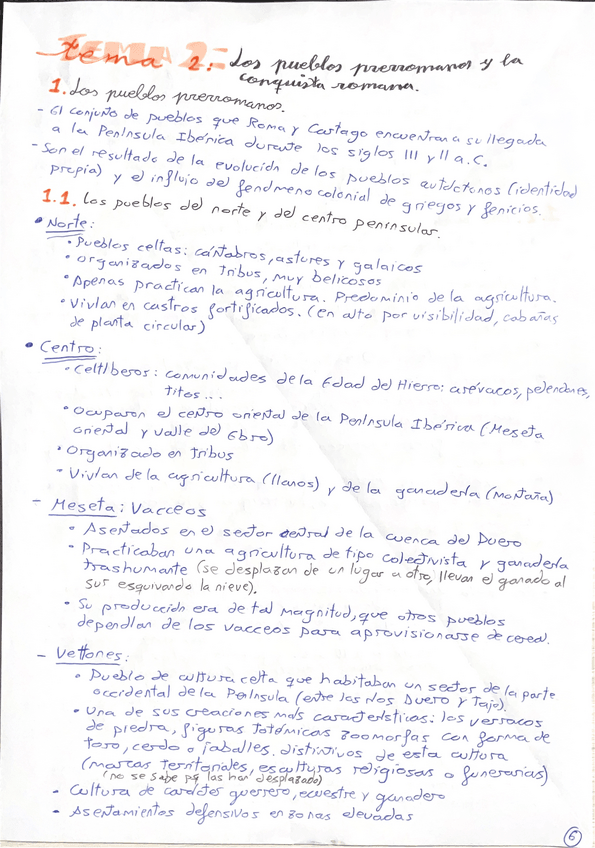 tema 2: Los pueblos prerromanos y la
conquista romana.
1. Los pueblos prerromanos.
- El conjunto de pueblos que Roma y Cartago encuentran a su llegada
a la Península Ibérica durante los siglos III y II a.C.
- Son el resultado de la evolución de los pueblos autóctonos (identidad
propia) y el influjo del fenómeno colonial de griegos y fenicios.
1.1. Los pueblos del norte y del centro peninsular.
• Norte:
• Pueblos celtas: cántabros, astures y galaicos
• organizados en tribus, muy belicosos
• Apenas practican la agricultura. Predominio de la agricultura.
• Vivían en castros fortificados. (en alto por visibilidad, cabañas
de planta circular)
• Centro:
• Celtíberos: comunidades de la Edad del Hierro: arévacos, pelendones,
titos...
• Ocuparon el centro oriental de la Península Ibérica (Meseta
oriental y valle del Ebro)
• Organizado en tribus
• Vivían de la agricultura (llanos) y de la ganadería (montaña)
- Meseta: Vacceos
• Asentados en el sector central de la cuenca del Duero
• Practicaban una agricultura de tipo colectivista y ganadería
trashumante (se desplazan de un lugar a otro, llevan el ganado al
sur esquivando la nieve).
• Su producción era de tal magnitud, que otros pueblos
dependían de los vacceos para aprovisionarse de cereal.
- Vettones:
• Pueblo de cultura celta que habitaban un sector de la parte
occidental de la Península (entre los ríos Duero y Tajo).
• Una de sus creaciones más características: los verracos
de piedra, figuras totémicas zoomorfas con forma de
toro, cerdo o jabalíes. distintivos de esta cultura
(marcas territoriales, esculturas religiosas o funerarias)
(no se sabe pq las han desplazado)
• Cultura de carácter guerrero, ecuestre y ganadero
• Asentamientos defensivos en zonas elevadas
6